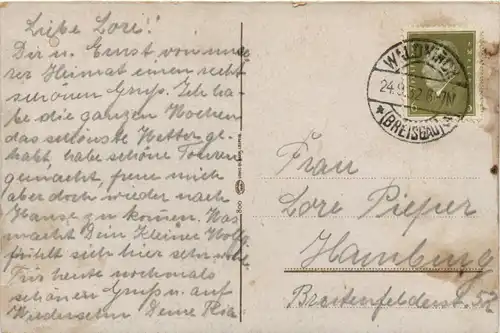 Liebe Lore!
Dir u. Ernst von unse
rer Heimat einen recht
schönen Gruß. Ich ha-
be die ganzen Wochen
das schönste Wetter ge-
habt, habe schöne Touren
gemacht, freue mich
aber doch wieder nach
Hause zu kommen. Was
macht Dein kleiner Wolfg.
fühlt sich hier sehr wohl.
Für heute nochmals
schönen Gruß u. auf
Wiedersehn Deine Ria
WALDKIRCH
24.9.32.6-7N
(BREISGAU)
Frau
Lore Pieper
Hamburg
Breitenfelderstr. 52